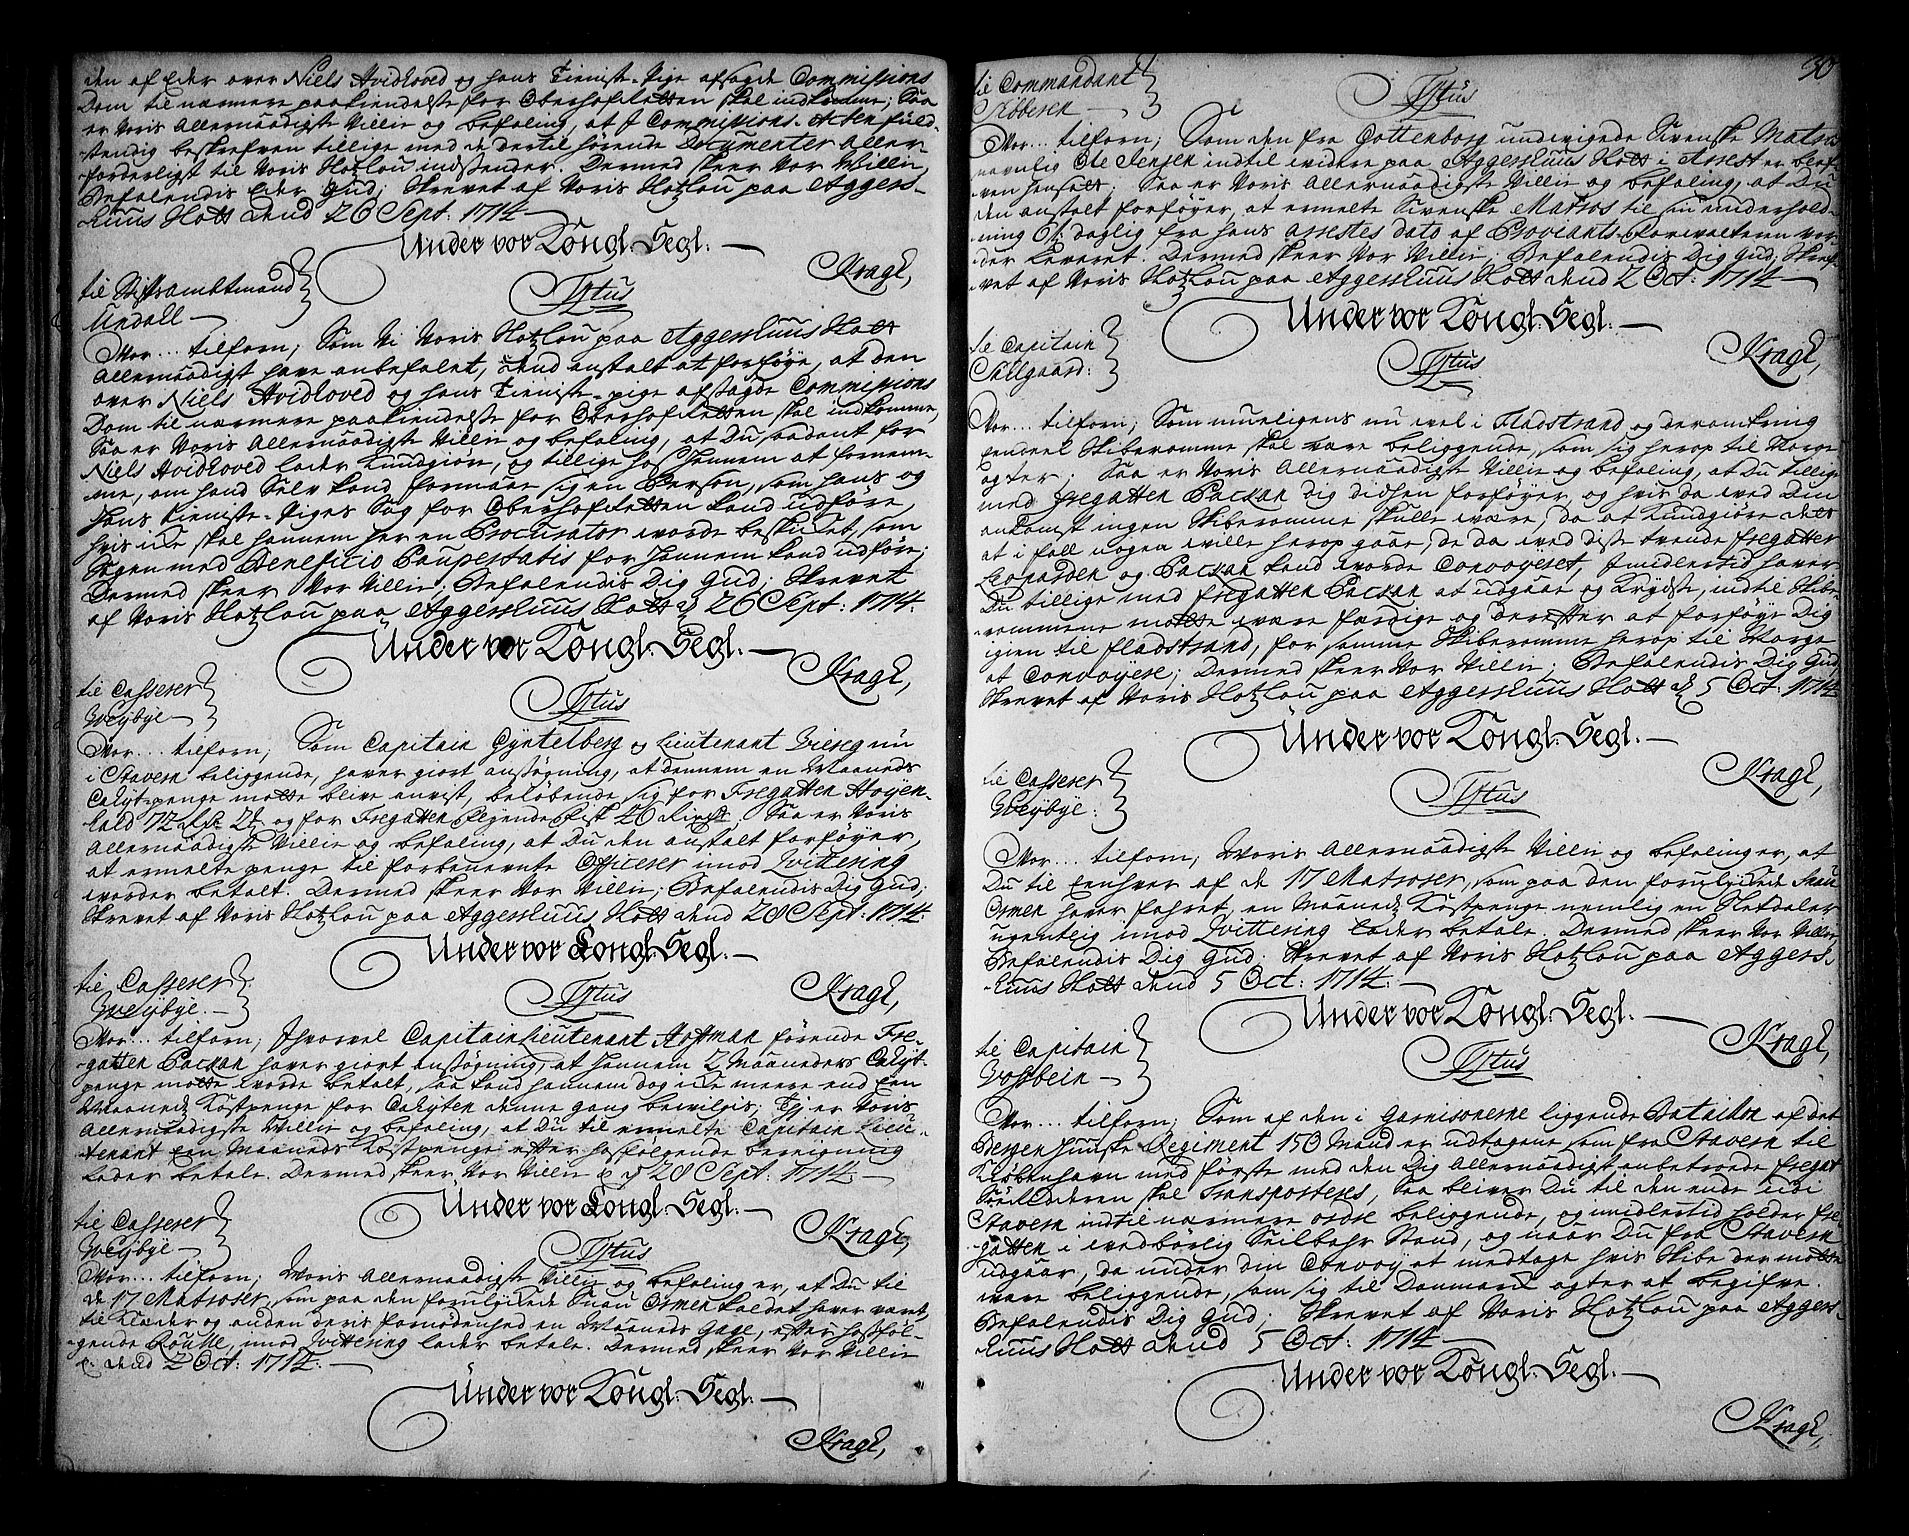 den af Eder over Niels Hvidhoved og hans Tieniste-Pige afsagde Commissions
Dom til nærmere paakiendelse for Oberhofretten skal indkomme; Saa
er Voris Allernaadigste Villie og befaling, at I Commissions-Acten fuld-
stendig beskrefven tillige med de dertil hørende Documenter aller-
forderligst til Voris Slotzlou indsender. Dermed skeer Vor Villie,
Befalendis Eder Gud; Skrevet af Voris Slotzlou paa Aggers-
huus Slott dend 26 Sept: 1714.
Under vor Kongl: Segl.
Krag,
til Stiftsambtmand
Undall
Tytus
Vor... tilforn; Som Vi Voris Slotzlou paa Aggershuus Slott
Allernaadigst have anbefalet, dend anstalt at forføye, at den
over Niels Hvidhoved og hans Tieniste-pige afsagde Commissions
Dom til nærmere paakiendelse for Oberhofretten skal indkomme,
Saa er Voris Allernaadigste Villie og befaling, at Du saadant for
Niels Hvidhoved lader kundgiøre, og tillige hos hannem at fornem-
me, om hand Selv kand formaae sig en Person, som hans og
hans Tieniste-Piges Sag for Oberhofretten kand udføre,
hvis icke skal hannem her en Procurator worde beskicket, som
Sagen med Beneficio Paupertatis for hannem kand udføre;
Dermed skeer Vor Villie; Befalendis Dig Gud; Skrevet
af Voris Slotzlou paa Aggershuus Slott d 26 Sept: 1714.
Under vor Kongl: Segl.
Krag,
til Casserer
Weybye
Tytus
Vor... tilforn; Som Capitain Gyntelberg og Lieutenant nu
i Stavern beliggende, haver giort ansøgning, at dennem en Maaneds
penge motte blive anvist, beløbende sig for Fregatten Høyen-
hald 72 og for Fregatten flygende Fisk 26. Saa er Voris
Allernaadigste Villie og befaling, at Du den anstalt forføyer,
at ermelte penge til forbenevnte Officerer imod Qvittering
worder betalt. Dermed skeer Vor Villie; Befalendis Dig Gud;
Skrevet af Voris Slotzlou paa Aggershuus Slott dend 28 Sept: 1714.
Under vor Kongl: Segl.
Krag,
til Casserer
Weybye.
Tytus
Vor... tilforn; Ihvorvel Capitain Lieutenant Hoffman førende Fre-
gatten Packan haver giort ansøgning, at hannem 2 Maaneders
penge motte worde betalt, saa kand hannem dog icke meere end Een
Maaneds Kostpenge for denne gang bevilgis; Thj er Voris
Allernaadigste Villie og befaling, at Du til ermelte Capitain Lieu-
tenant Een Maaneds Kostpenge efter hosfølgende beregning
lader betale. Dermed skeer Vor Villie d 28 Sept: 1714.
Under vor Kongl: Segl.
Krag,
til Casserer
Weybye
Tytus
Vor... tilforn; Voris Allernaadigste Villie og befaling er, at Du til
de 17 Matroser, som paa den forulyckede Snau Ormen kaldet haver været
til Klæder og anden deris fornødenhed en Maaneds Gage, efter hosføl-
gende Roulle, imod Qvittering lader betale. Dermed skeer Vor Villie
dend 2 Oct: 1714.
Under vor Kongl: Segl.
Krag,
30
til Commandant
Sibbersen
Tytus
Vor... tilforn; Som den fra Gottenborg undvigede Svenske Matros
navnlig Ole Jensen indtil widere paa Aggershuus Slott i Arrest er blef-
ven hensatt; Saa er Voris Allernaadigste Villie og befaling, at Du
den anstalt forføyer, at ermelte Svenske Matros til sin underhold-
ning 6 s. daglig fra hans arrestes dato af Proviants-forvalteren vor-
der leveret. Dermed skeer Vor Villie; Befalendis Dig Gud, Skref-
vet af Voris Slotzlou paa Aggershuus Slott dend 2 Oct: 1714
Under vor Kongl: Segl.
Krag,
til Capitain
Tytus
Vor... tilforn; Som mueligens nu vel i Fladstrand og deromkring
eendeel Skiberomme skal være beliggende, som sig herop til Norge
agter; Saa er Voris Allernaadigste Villie og befaling, at Du tillige
med Fregatten Packan dig didhen forføyer, og hvis da wed Din
ankomst ingen Skiberomme skulle wære, da at kundgiøre dett
at i fall nogen wille herop gaae, de da wed disse tvende Fregatter
Leoparden og Packan kand worde Convoyeret, Imidlertid haver
Du tillige med Fregatten Packan at udgaae og krydse, indtil Skibe-
rommene motte wære færdige og derefter at forføye Dig
igien til fladstrand, for samme Skiberomme herop til Norge
at Convoyere; Dermed skeer Vor Villie; Befalendis Dig Gud,
Skrevet af Voris Slotzlou paa Aggershuus Slott d 5 Oct: 1714.
Under vor Kongl: Segl.
Krag,
til Casserer
Weybye.
Tytus
Vor... tilforn; Voris Allernaadigste Villie og befaling er, at
Du til Eenhver af de 17 Matroser, som paa den forulyckede Snau
Ormen haver fahret, en Maaneds Kostpenge nemlig en Sletdaler
ugentlig imod Qvittering lader betale. Dermed skeer Vor Villie,
Befalendis Dig Gud. Skrevet af Voris Slotzlou paa Aggers-
huus Slott dend 5 Oct: 1714.
Under vor Kongl: Segl.
Krag,
til Capitain
Vosbein
Tytus
Vor... tilforn; Som af den i Garnisonerne liggende Bataillon af det
Bergenhuuske Regiment 150 Mand er udtagne som fra Stavern til
Kiøbenhavn med første med den Dig Allernaadigst anbetroede fregat
Søeridderen skal Transporteres, Saa bliver Du til den ende udi
Stavern indtil nærmere ordre beliggende, og imidlertid holder fre-
gatten i wedbørlig Seilbahr Stand, og naar Du fra Stavern
udgaar, da under din Convoy at medtage hvis Skibe der motte
wære beliggende, som sig til Danmarck agter at begifve.
Befalendis Dig Gud; Skrevet af Voris Slotzlou paa Aggers-
huus Slott dend 5 Oct: 1714
Under vor Kongl: Segl.
Krag,